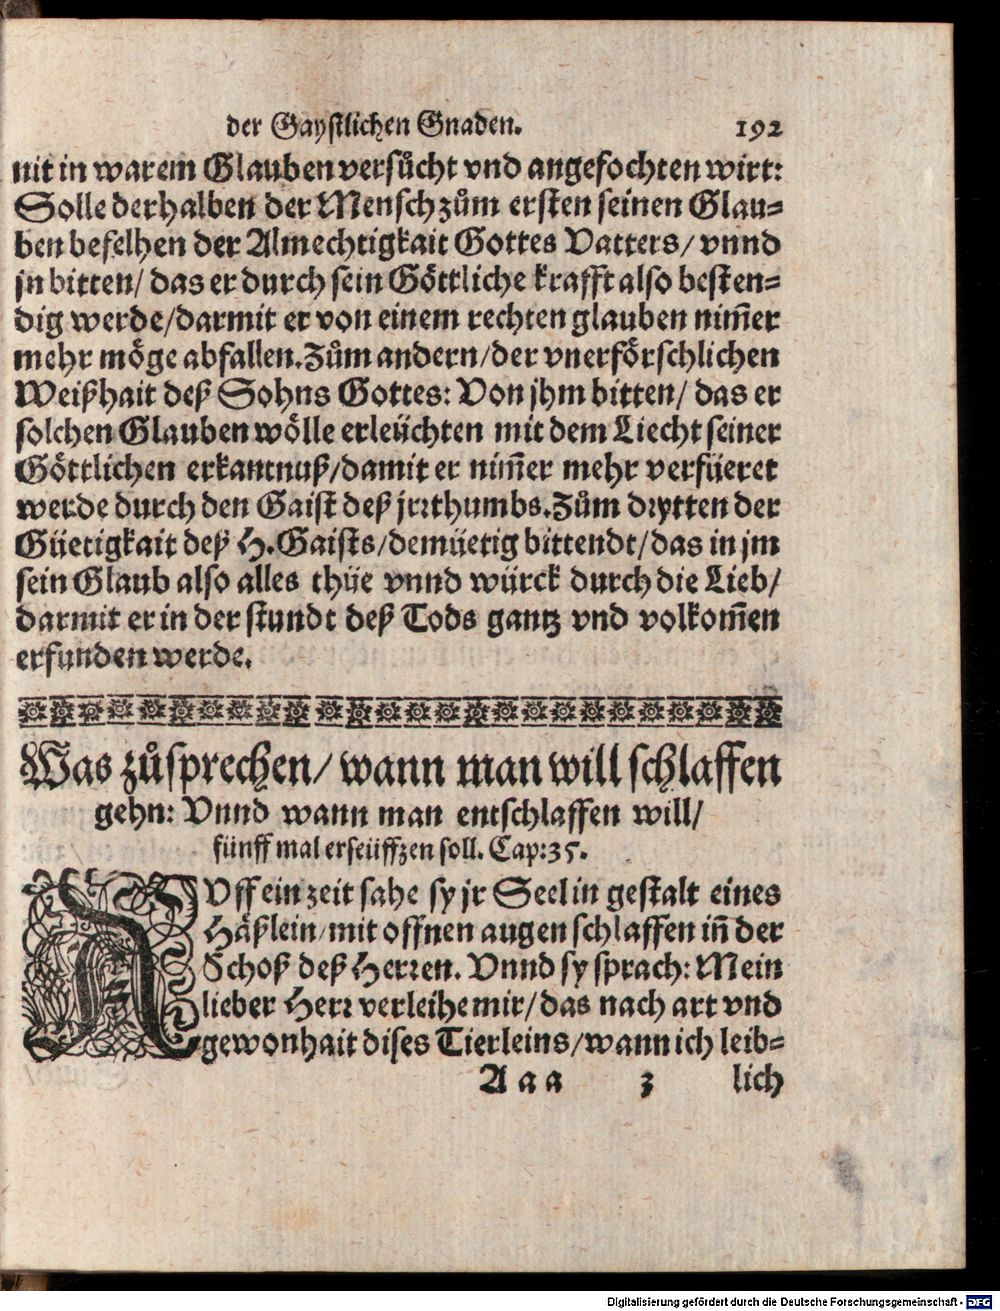 der Gaystlichen Gnaden. 192
nit in warem Glauben versůcht vnd angefochten wirt:
Solle derhalben der Mensch zům ersten seinen Glau=
ben befelhen der Almechtigkait Gottes Vatters/ vnnd
jn bitten/ das er durch sein Göttliche krafft also besten=
dig werde/ darmit er von einem rechten glauben nim̄er
mehr möge abfallen. Zům andern/ der vnerförschlichen
Weißhait deß Sohns Gottes: Von jhm bitten/ das er
solchen Glauben wölle erleüchten mit dem Liecht seiner
Göttlichen erkantnuß/ damit er nim̄er mehr verfüeret
werde durch den Gaist deß jrꝛthumbs. Zům dꝛytten der
Güetigkait deß H. Gaists/ demüetig bittendt/ das in jm
sein Glaub also alles thüe vnnd würck durch die Lieb/
darmit er in der stundt deß Tods gantz vnd volkom̄en
erfunden werde.
Was zůsprechen/ wann man will schlaffen
gehn: Vnnd wann man entschlaffen will/
fünff mal erseüffzen soll. Cap: 35.
AVff ein zeit sahe sy jr Seel in gestalt eines
Häßlein/ mit offnen augen schlaffen in̄ der
Schoß deß Herꝛen. Vnnd sy sprach: Mein
lieber Herꝛ verleihe mir/ das nach art vnd
gewonhait dises Tierleins/ wann ich leib=
A a a 3 lich
Digitalisierung gefördert durch die Deutsche Forschungsgemeinschaft - DFG